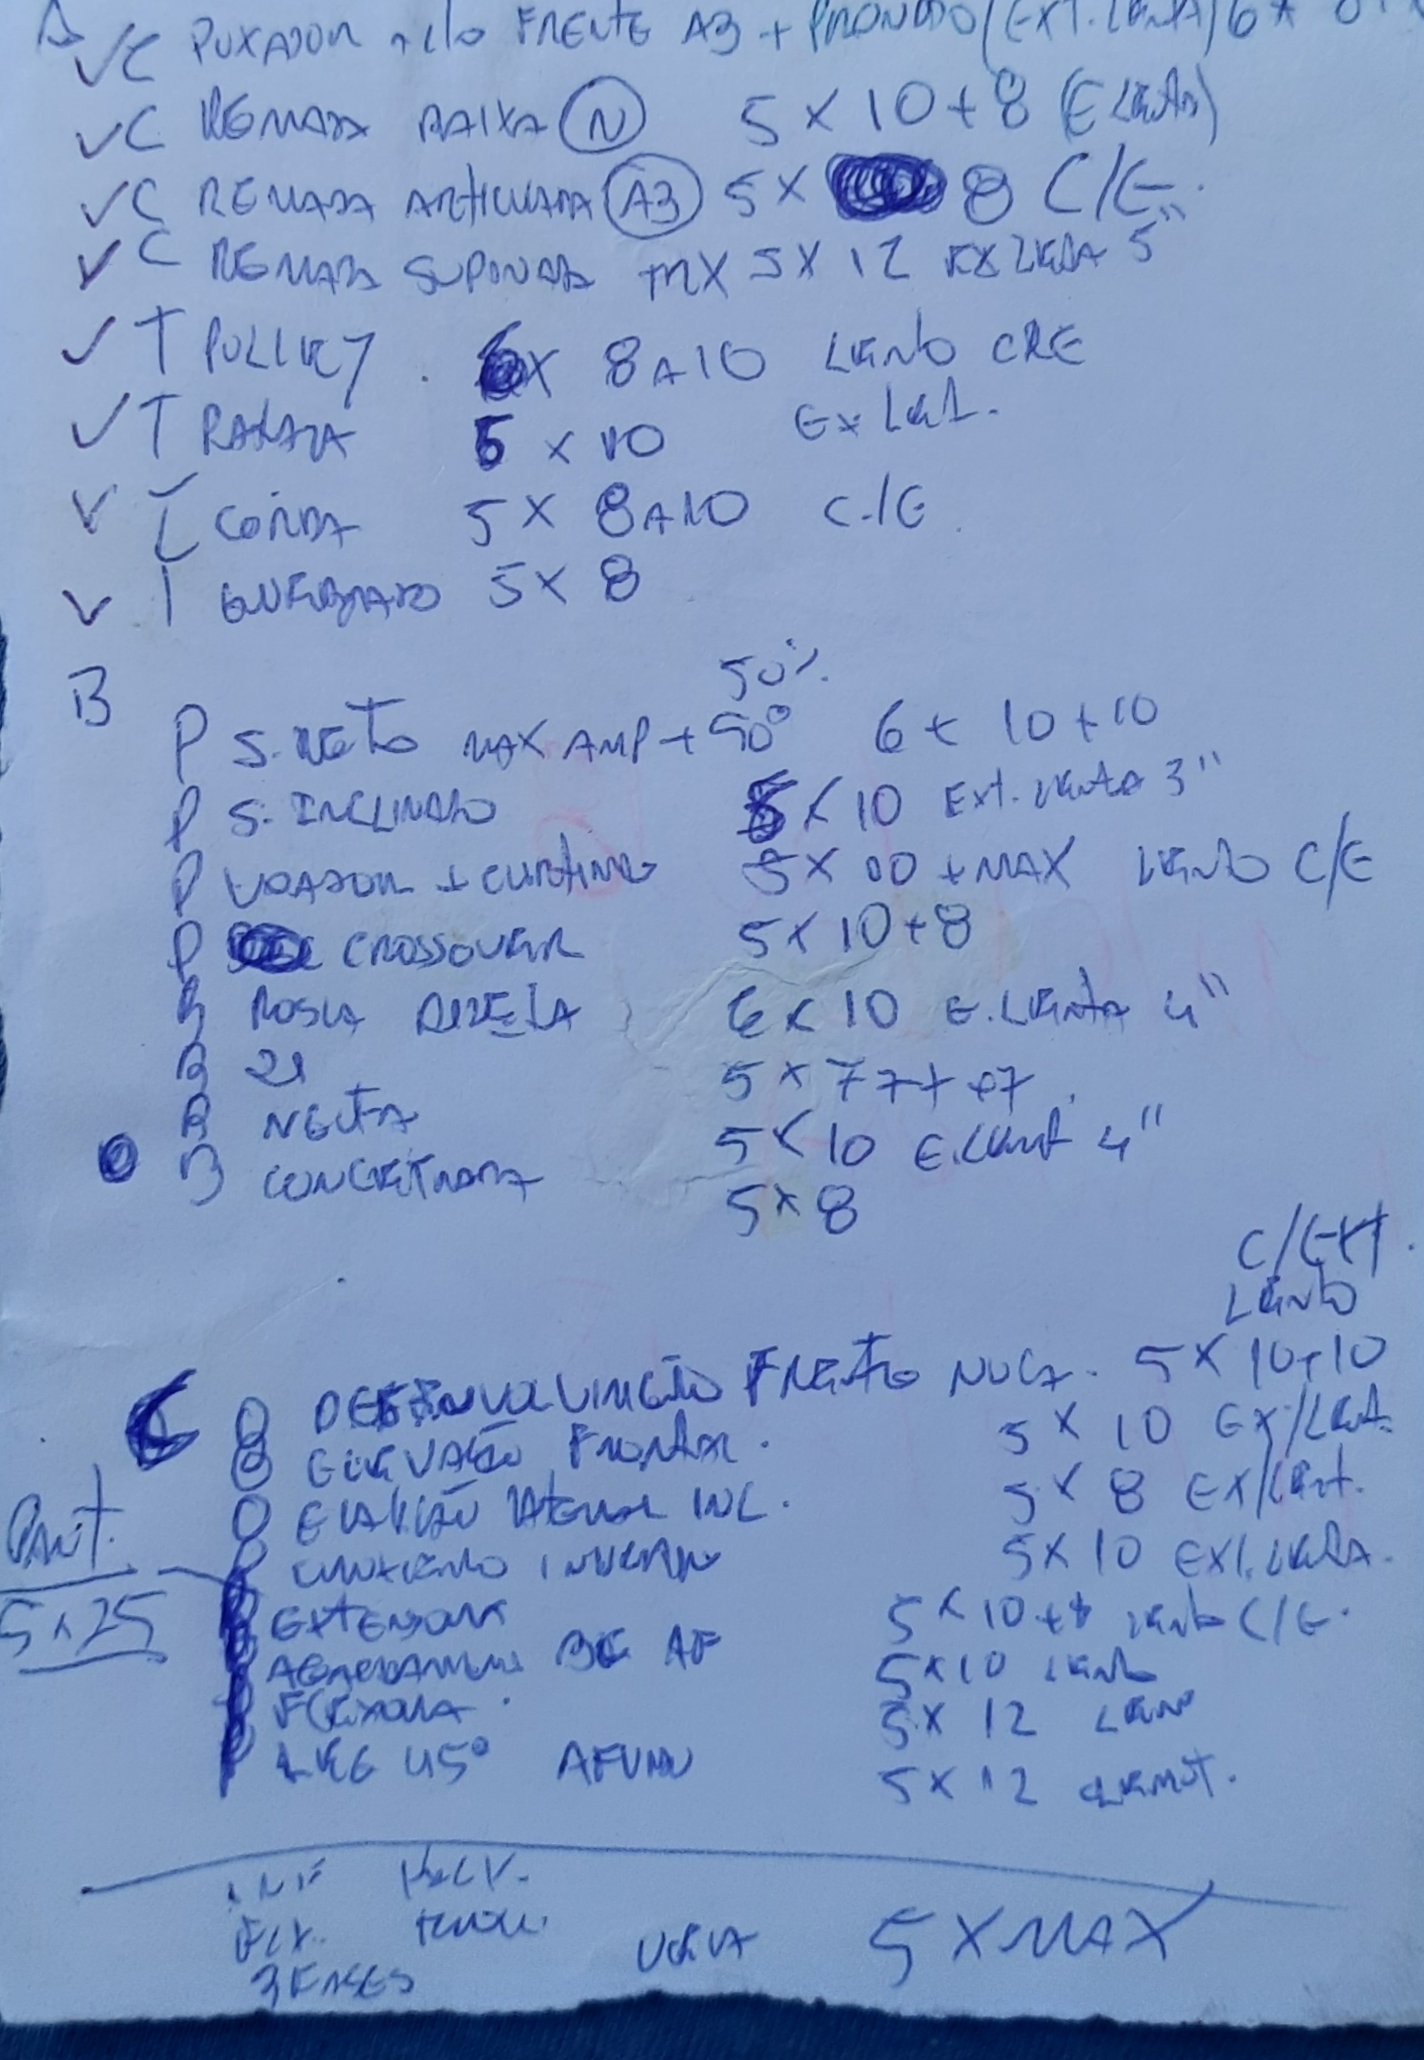 A
✓ C PUXADOR FRENTE A3 + PRONADO (EXT. LENTA) 6 X
✓ C REMADA BAIXA (N) 5 X 10 + 8 (E LENTA)
✓ C REMADA ARTICULADA (A3) 5 X 8 C/E
✓ C REMADA SUPINADA 5 X 12 EX LENTA 5"
✓ T PULLEY X 8 A 10 LENTO CRE
✓ T PARADA X 10 EX LENT.
✓ T CORDA 5 X 8 A 10 C/E
✓ T QUEBRADO 5 X 8
B
50%
P S. RETO MAX AMP + 90° 6 X 10 + 10
P S. INCLINADO 5 X 10 EXT. LENTA 3"
P VOADOR + CURTINHO 5 X 10 + MAX LENTO C/E
P CROSSOVER 5 X 10 + 8
B ROSCA DIRETA 6 X 10 E. LENTA 4"
B 21 5 X 7 7 + + 7
B NEUTRA 5 X 10 E. LENT 4"
B CONCENTRADA 5 X 8
C/EXT.
LENTO
C O DESENVOLVIMENTO FRENTE NUCA. 5 X 10 + 10
O ELEVAÇÃO FRONTAL. 5 X 10 EX/LENT.
O ELEVAÇÃO LATERAL INC. 5 X 8 EX/LENT.
O CRUCIFIXO INVERSO 5 X 10 EXT. LENTA.
PANT.
5 X 25
EXTENSORA 5 X 10 + 8 LENTO C/E.
AGACHAMENTO AF 5 X 10 LENTO
FLEXORA 5 X 12 LENTO
LEG 45° 5 X 12 LENT.
INF PELV.
FLX.
3 FASES 5 X MAX